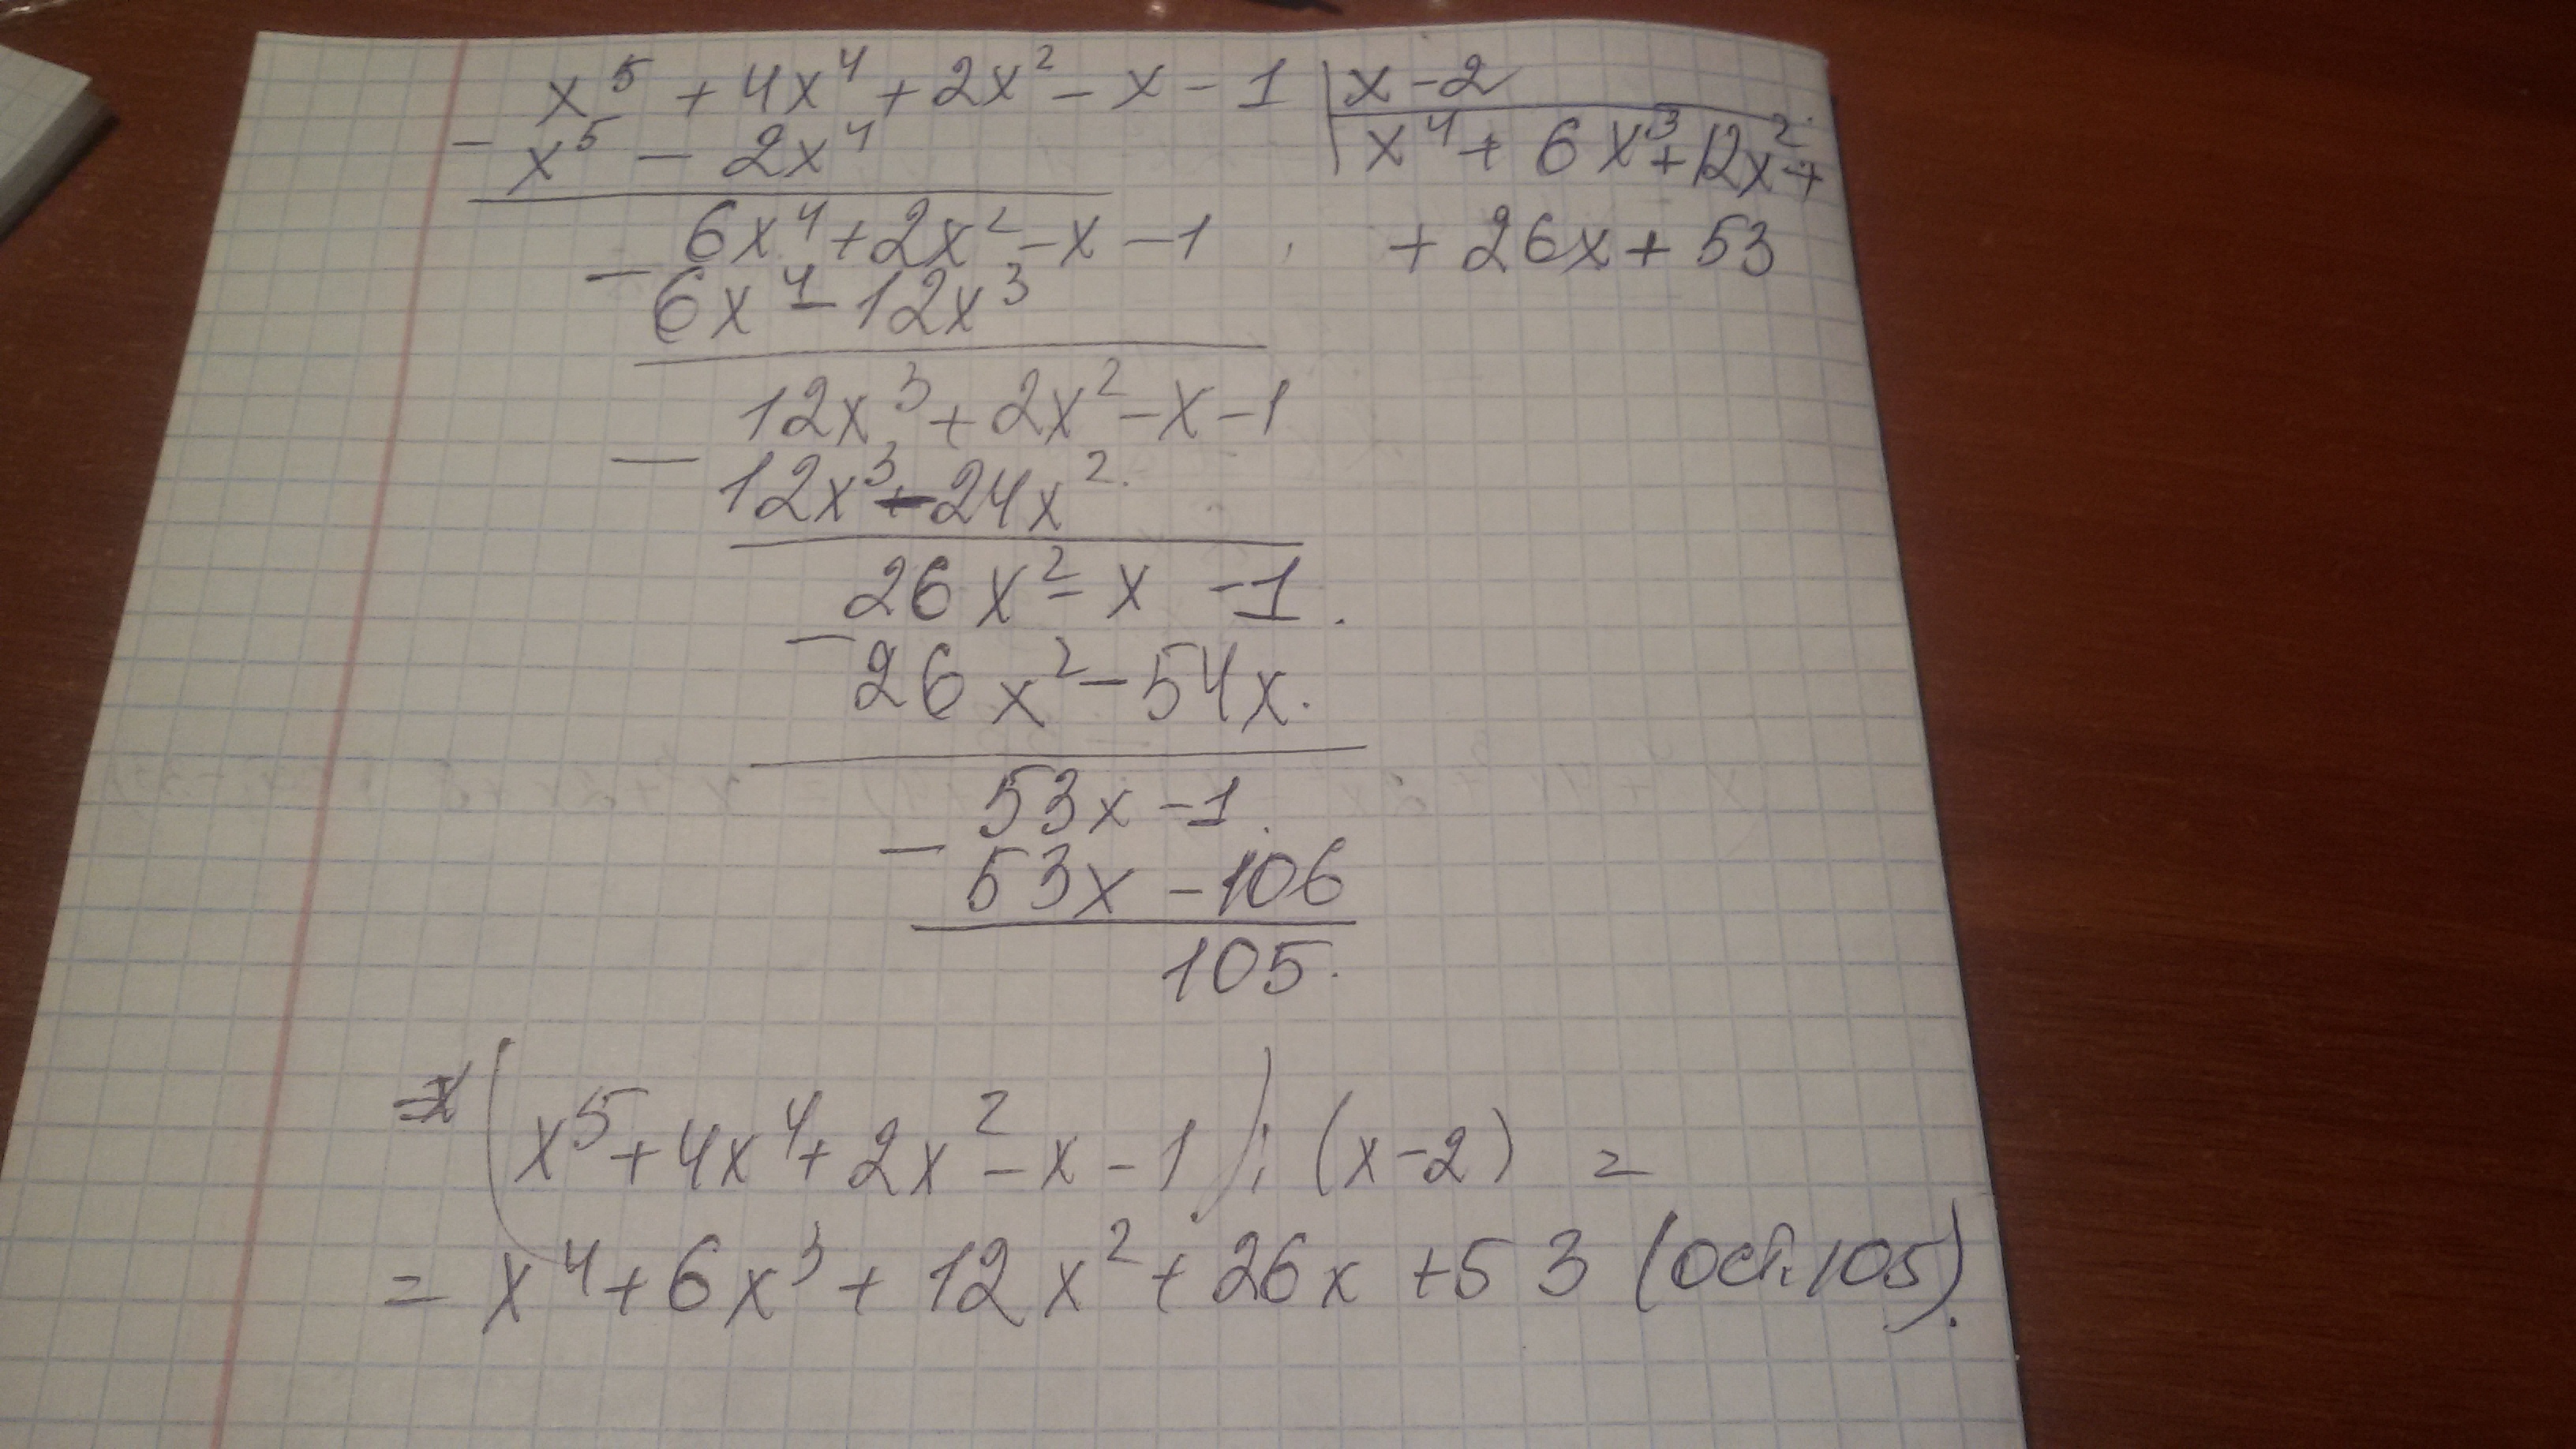 x⁵ + 4x⁴ + 2x² - x - 1 | x - 2
- x⁵ - 2x⁴ | x⁴ + 6x³ + 12x² +
6x⁴ + 2x² - x - 1 + 26x + 53
- 6x⁴ - 12x³
12x³ + 2x² - x - 1
- 12x³ - 24x²
26x² - x - 1.
- 26x² - 54x.
53x - 1.
- 53x - 106
105.
(x⁵ + 4x⁴ + 2x² - x - 1) : (x - 2) =
= x⁴ + 6x³ + 12x² + 26x + 53 (ост. 105).